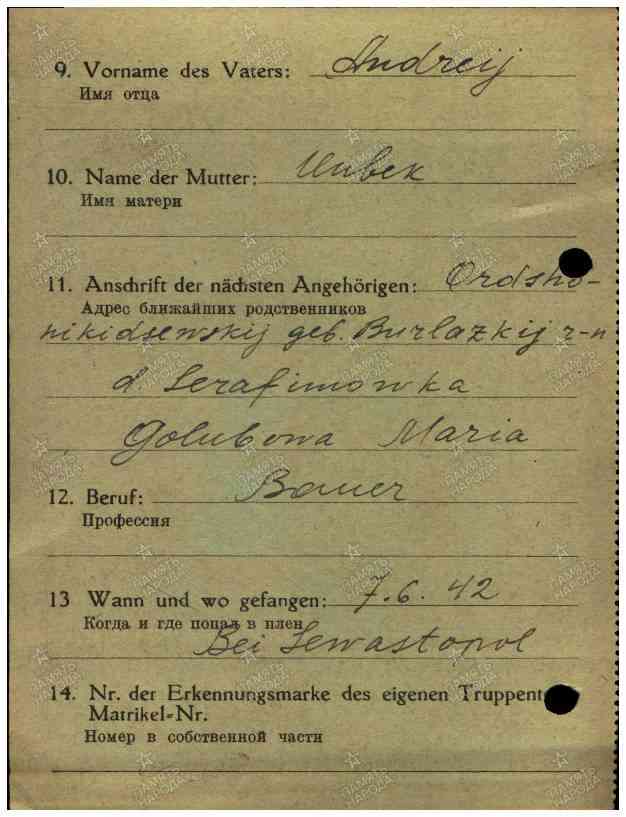 9. Vorname des Vaters: Andreij
Имя отца
10. Name der Mutter: Unbek
Имя матери
11. Anschrift der nächsten Angehörigen: Ordsho-
Адрес ближайших родственников
nikidsewskij geb. Burlazkij r-n
d. Serafimowka
Golubowa Maria
12. Beruf: Bauer
Профессия
13 Wann und wo gefangen: 7.6.42
Когда и где попал в плен
Bei Sewastopol
14. Nr. der Erkennungsmarke des eigenen
Matrikel-Nr.
Номер в собственной части